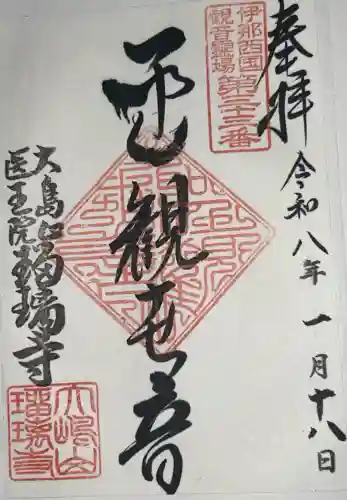 奉拝
令和八年一月十八日
伊那西国
観音霊場
第三十三番
正観世音
大島山瑠璃寺
医王院
大嶋山
瑠璃寺